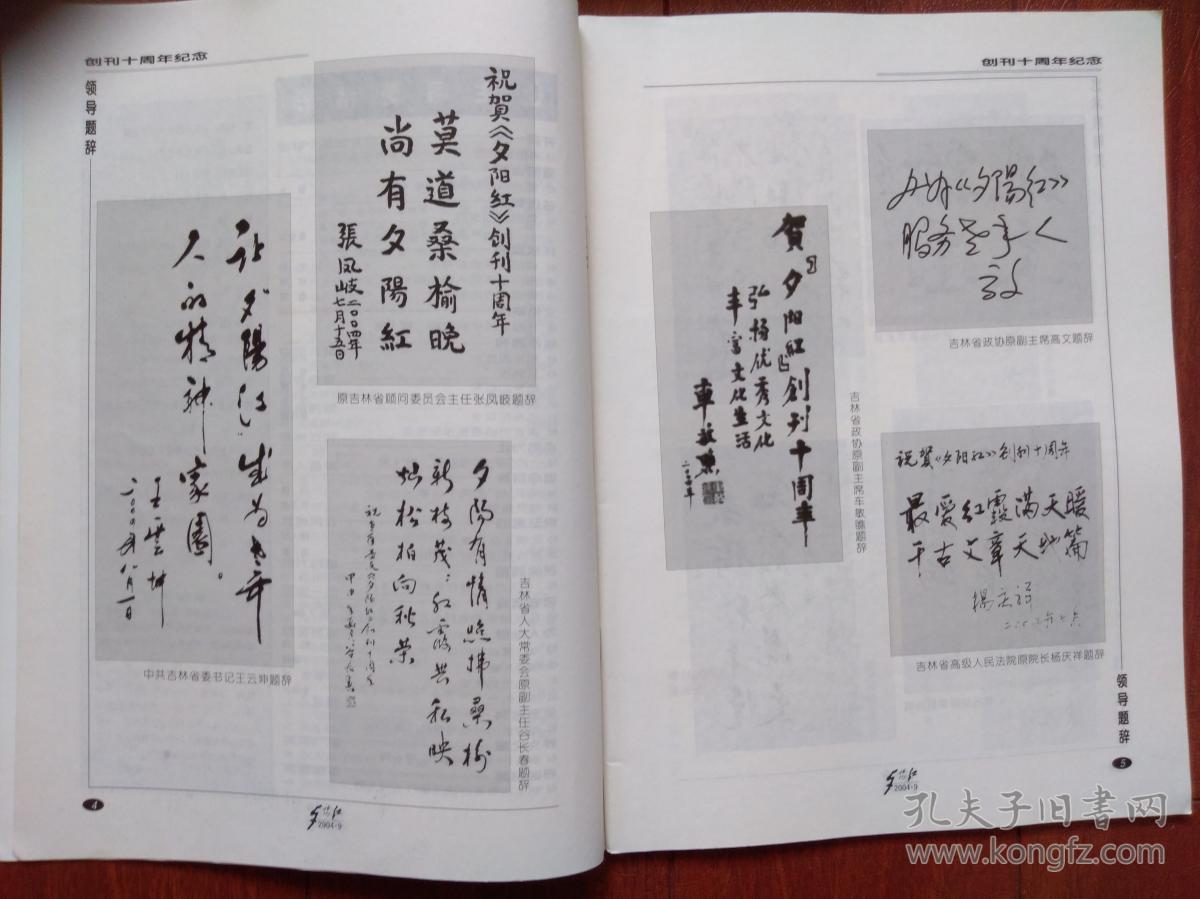 创刊十周年纪念
领导题辞
祝賀《夕阳红》创刊十周年
莫道桑榆晚
尚有夕陽紅
張凤岐二〇〇四年
七月十五日
原吉林省顾问委员会主任张凤岐题辞
让夕陽红成为老年
人的精神家園。
王雲坤
二〇〇四年八月一日
中共吉林省委书记王云坤题辞
夕陽有情
新枝茂
松柏向秋荣
吉林省人大常委会原副主任谷长春题辞
4
夕阳红
2004·9
创刊十周年纪念
办好《夕陽红》
服务老年人
吉林省政协原副主席高文题辞
賀《夕阳紅》創刊十周年
弘扬优秀文化
丰富文化生活
車敏瞧
二〇〇四年
吉林省政协原副主席车敏瞧题辞
祝賀《夕阳红》创刊十周年
最爱红霞满天暖
千古文章天地篇
楊庆祥
吉林省高级人民法院原院长杨庆祥题辞
领导题辞
5
夕阳红
2004·9
孔夫子旧书网
www.kongfz.com